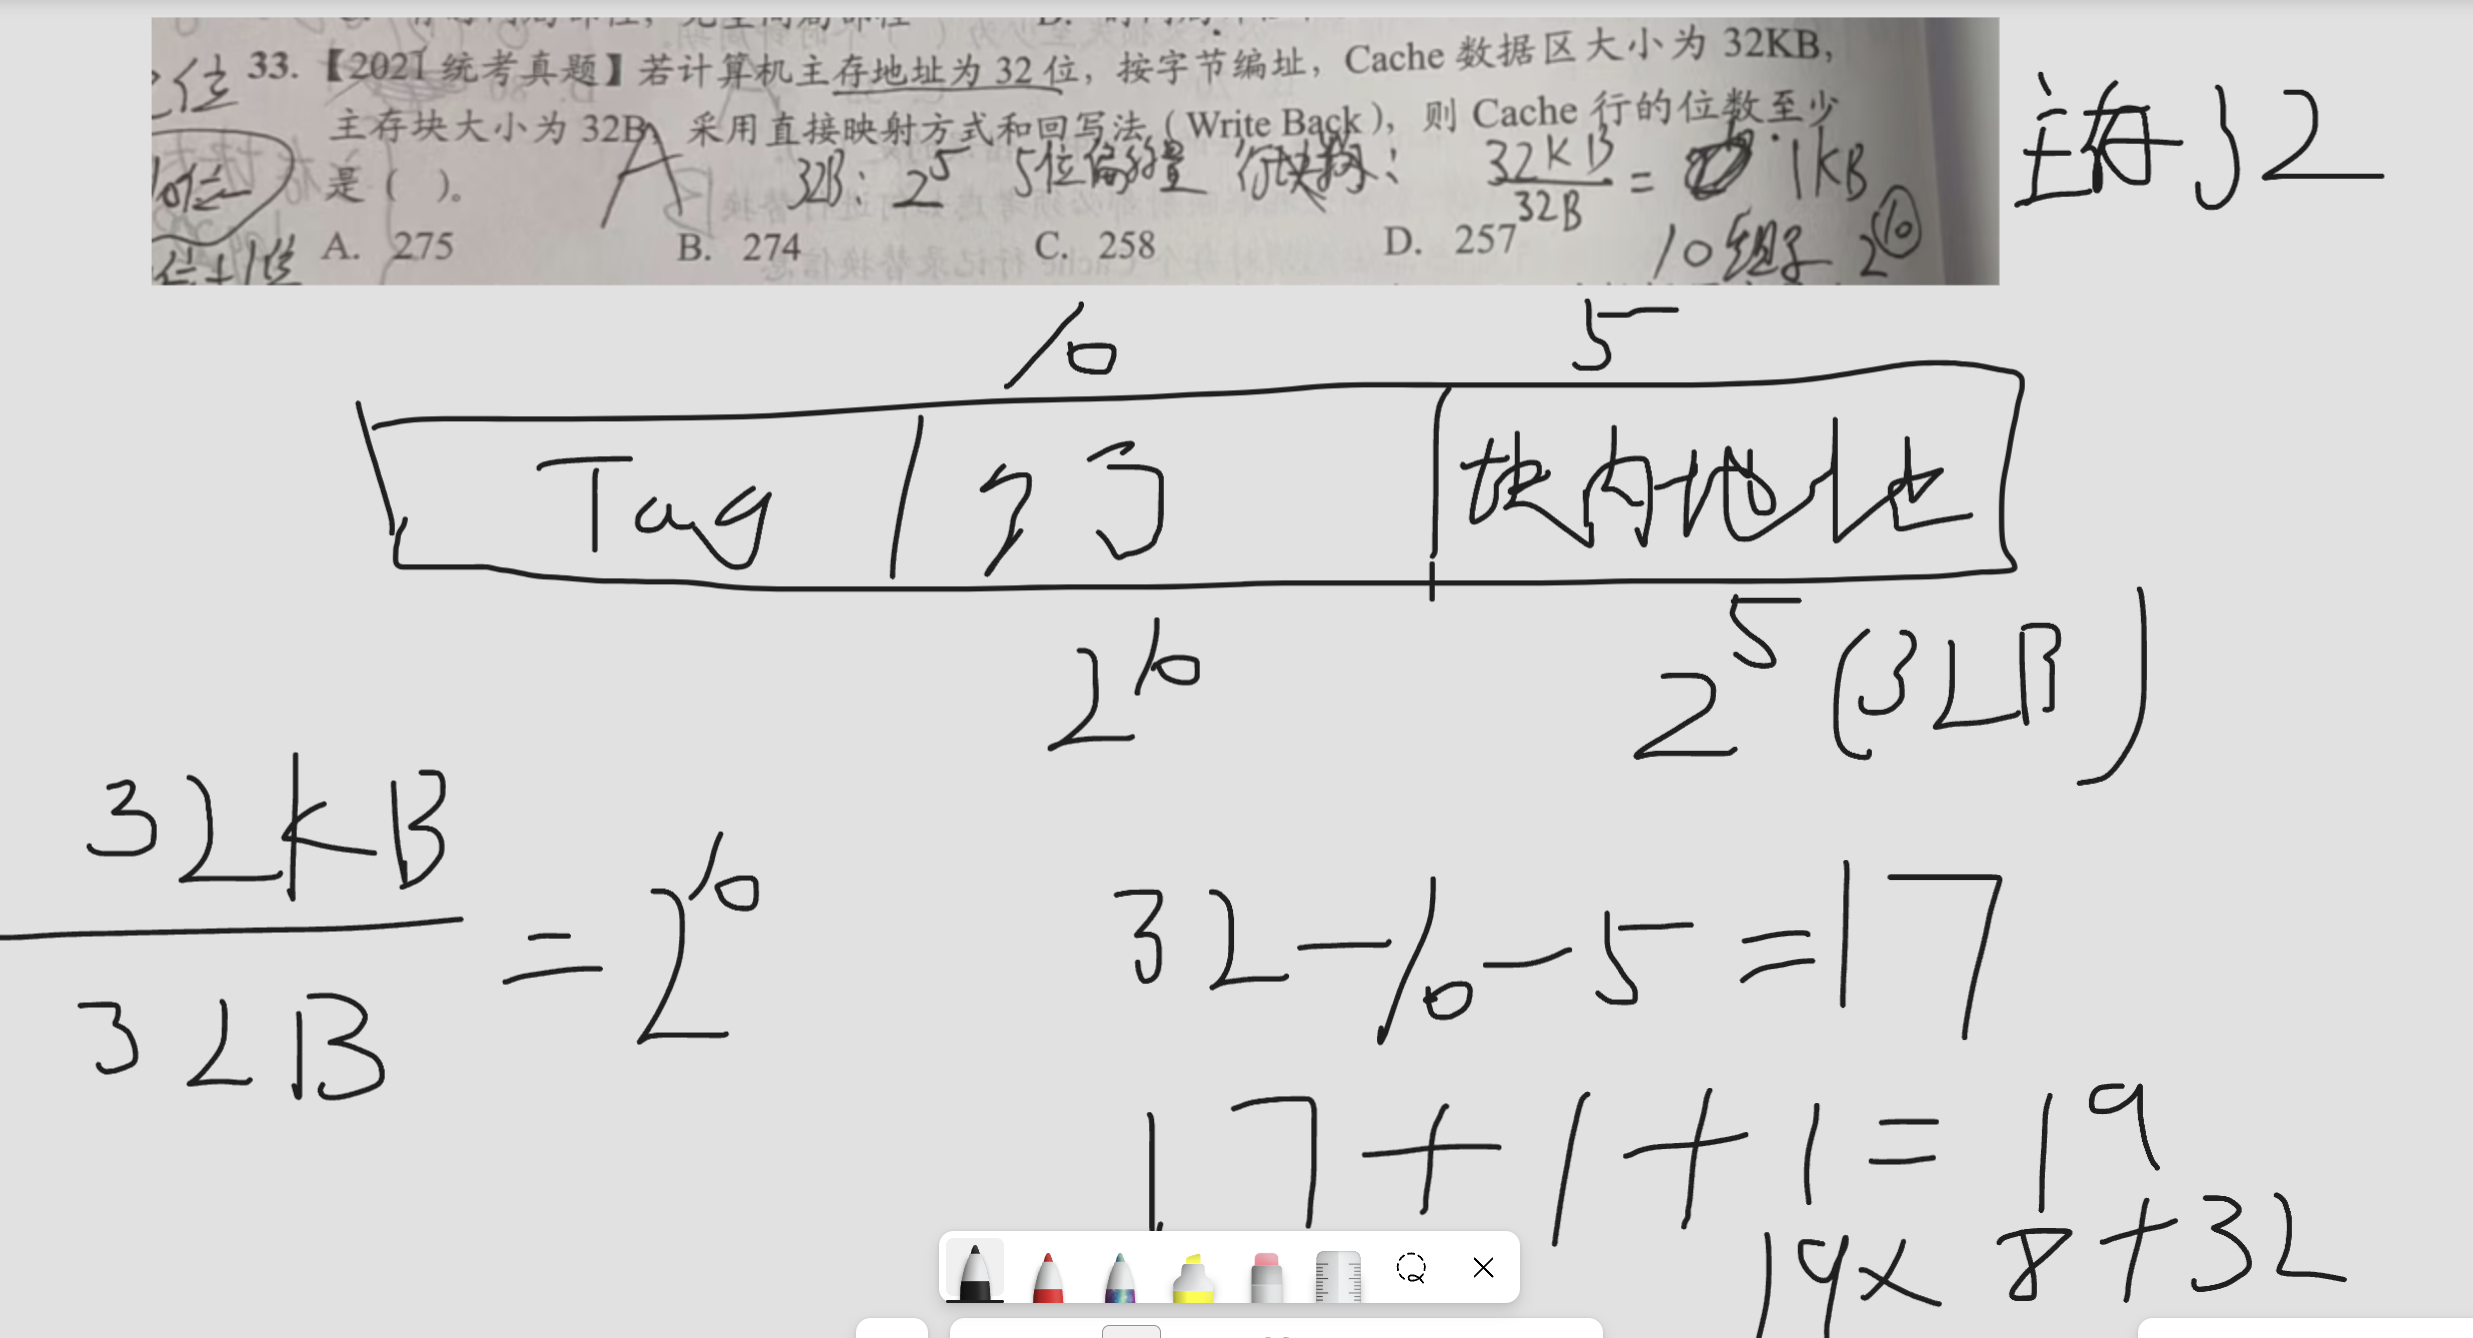 33. 【2021 统考真题】若计算机主存地址为 32 位，按字节编址，Cache 数据区大小为 32KB，
主存32
主存块大小为 32B，采用直接映射方式和回写法（Write Back），则 Cache 行的位数至少
是（ ）。
A
32B: 2^5 5位偏移量
32KB
32B
= 1KB
A. 275 B. 274 C. 258 D. 257
2^10
10 5
Tag 行号 块内地址
2^10 2^5 (32B)
32KB
32B
= 2^10
32-10-5=17
17+1+1=19
19x 8+32